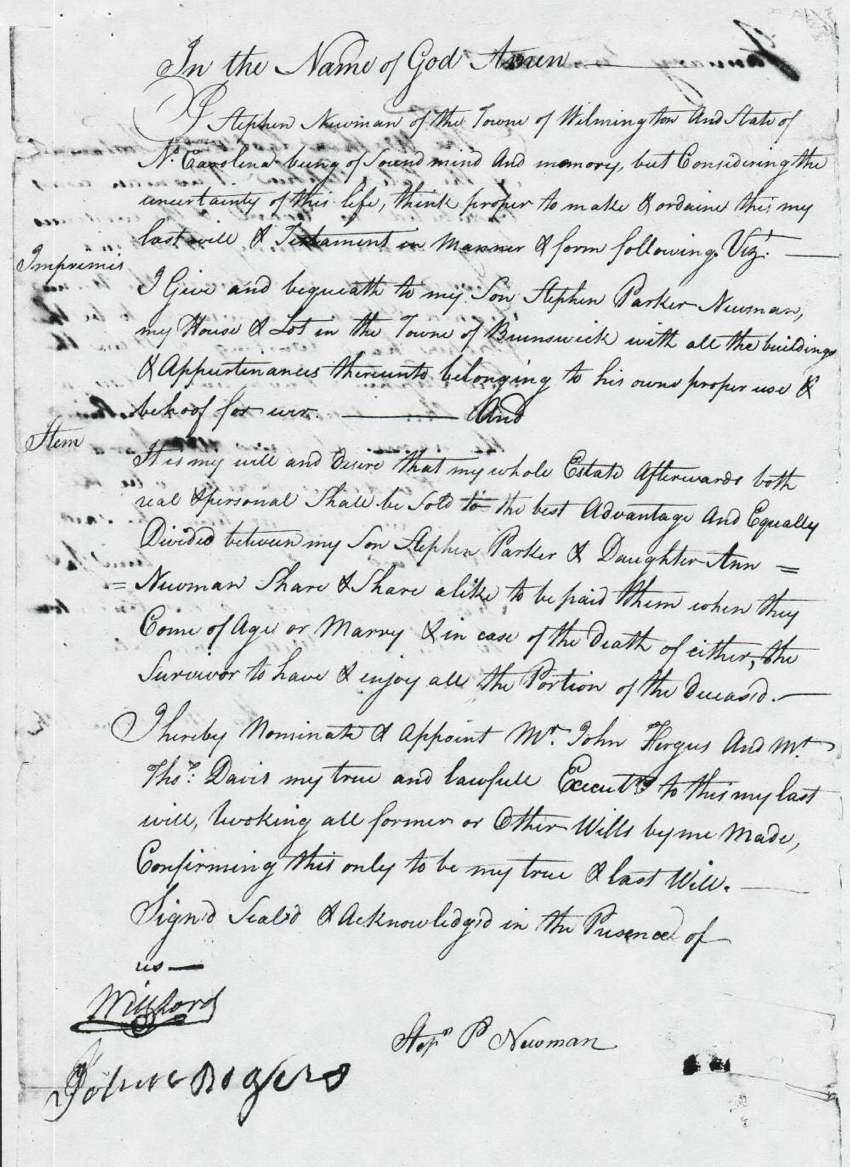 January
In the Name of God Amen
I Stephen Newman of the Towne of Wilmington And State of
No. Carolina being of Sound mind And memory, but Considering the
uncertainty of this life, think proper to make & ordaine this my
last will & Testament in Manner & form following Vizt.
Imprimis
I Give and bequeath to my Son Stephen Parker Newman,
my House & Lot in the Towne of Brunswick with all the buildings
& Appurtenances thereunto belonging to his owne proper use &
behoof for ever. And
Item
It is my will and desire that my whole Estate Afterwards both
real & personal Shall be Sold to the best Advantage And Equally
Divided between my Son Stephen Parker & Daughter Ann =
= Newman Share & Share alike to be paid them when they
Come of Age or Marry & in case of the Death of either, the
Survivor to have & enjoy all the Portion of the deceas'd.
I hereby Nominate & Appoint Mr. John Fergus And Mr.
Thos. Davis my true and lawfull Executrs to this my last
will, revoking all former or Other Wills by me Made,
Confirming this only to be my true & last Will.
Sign'd Seal'd & Acknowledg'd in the Presence of
us
Will Lord
Stepn P Newman
John Rogers